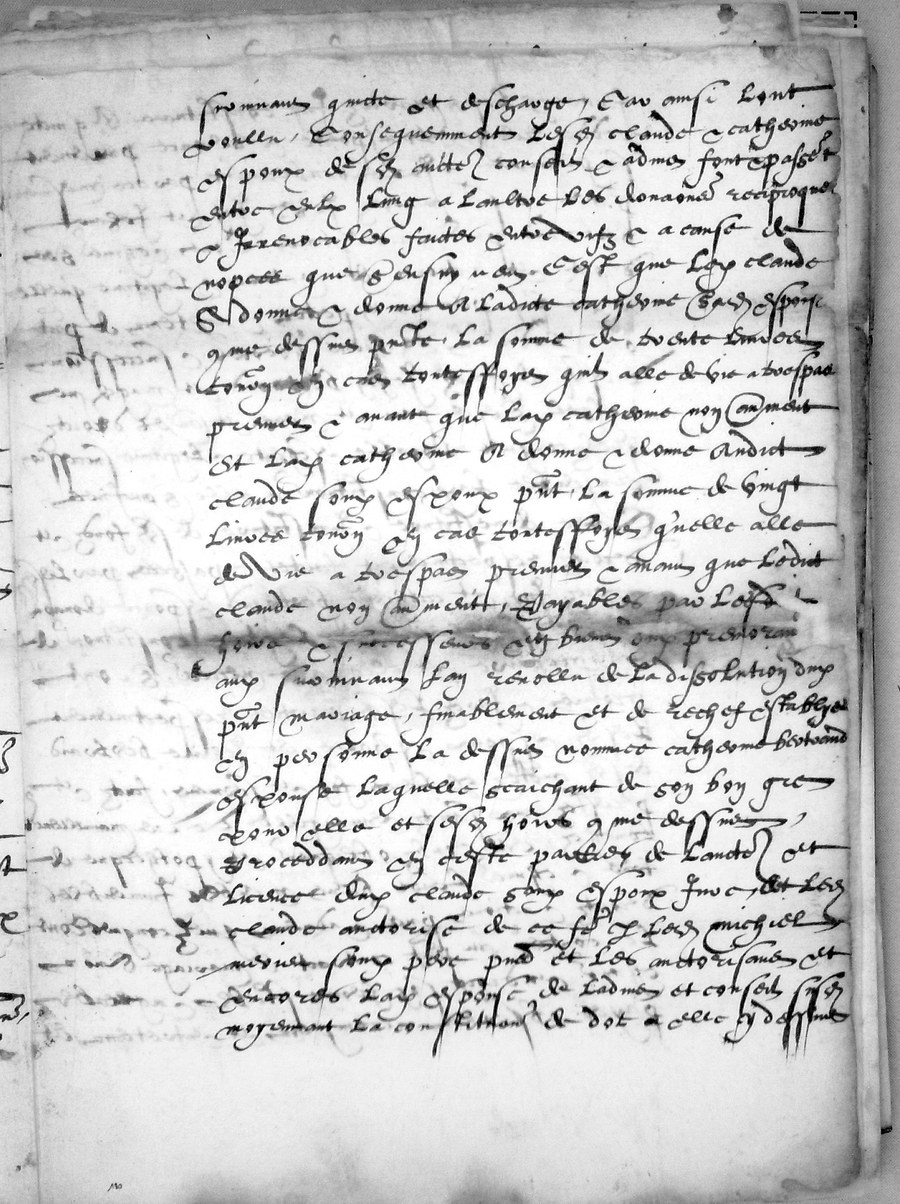 survivant quicte et descharge, Car ainsi lont
voullu, Consequemment lesd claude & catherine
espoux de sd auctez conseil & admen font & passet
entre eulx lung a laultre les donaons reciproques
& Irrevocables faictes entre vifz & a cause de
nopces que sensuyven, Cest que led claude
A donne & donne A ladicte catherine sad espouse
come dessus pnte la somme de trente livres
tourn en cas toutesffoys quil alle de vie a trespas
premier & avant que lad catherine non aultrement
Et lad catherine A donne & donne Audict
claude sond espoux pnt la somme de vingt
livres tourn en cas toutesffoys quelle alle
de vie a trespas premier & avant que ledict
claude non aultrement, Payables par les
hoirs & successeurs et biens du premoran
aud survivant lan revollu de la dissolution dud
pnt mariage, finablement et de rechef establye
en personne la dessus nommee catherine bertrand
espouse laquelle scaichant de son bon gre
pour elle et sesd hoirs come dessus,
Proceddant en ceste partie de laucte et
licence dud claude sond espoux Jure, et led
claude auctorise de ce fe p led michiel
mevier sond pere pnt et les auctorisans et
encores lad espouse de ladmen et conseil susd
moyennant la constitution de dot a elle cy dessus